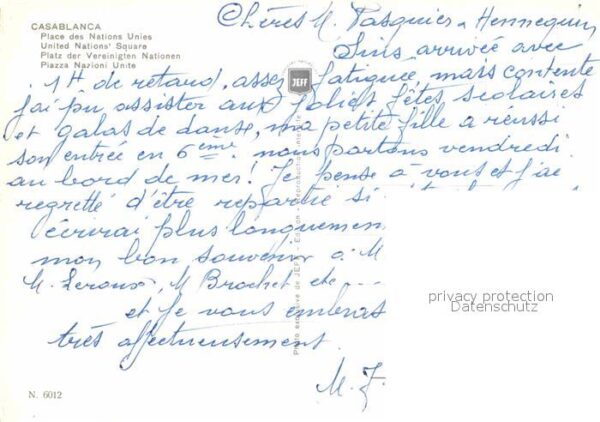 CASABLANCA
Place des Nations Unies
United Nations' Square
Platz der Vereinigten Nationen
Piazza Nazioni Unite
Chères M. Pasquier - Hennequin
Suis arrivée avec
1H de retard, assez fatiguée, mais contente
j'ai pu assister aux jolies fêtes scolaires
et galas de danse, ma petite fille a réussi
son entrée en 6ème. nous partons vendredi
au bord de mer! Je pense à vous et j'ai
regretté d'être repartie si
écrirai plus longuemen
mon bon souvenir à M
M. Leroux, M Brochet etc...
et je vous embras
très affectueusement
M. J.
JEFF
privacy protection
Datenschutz
N. 6012